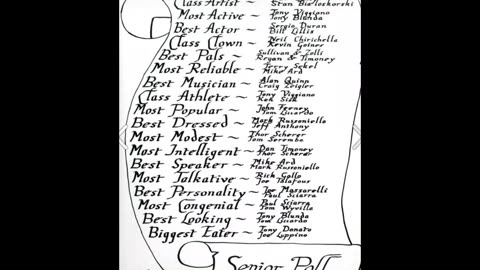 Class Artist ~ Stan Bieloskorski
Most Active ~ Tony Viggiano
Tony Blunda
Best Actor ~ Sergio Duran
Bill Lillis
Class Clown ~ Neil Chirichella
Kevin Goines
Best Pals ~ Sullivan & Zolli
Regan & Timoney
Most Reliable ~ Terry Sekel
Mike Ard
Best Musician ~ Alan Quinn
Craig Zeigler
Class Athlete ~ Tony Viggiano
Ken Sisk
Most Popular ~ John Feeney
Tom Liccardo
Best Dressed ~ Mark Russoniello
Jeff Anthony
Most Modest ~ Thor Scherer
Tom Serembo
Most Intelligent ~ Dan Timoney
Thor Scherer
Best Speaker ~ Mike Ard
Mark Russoniello
Most Talkative ~ Rich Gallo
Joe Talafous
Best Personality ~ Joe Mazzarelli
Paul Sciarra
Most Congenial ~ Paul Sciarra
Tom Wyvilla
Best Looking ~ Tony Blunda
Tom Liccardo
Biggest Eater ~ Tony Donato
Joe Luppino
Senior Poll